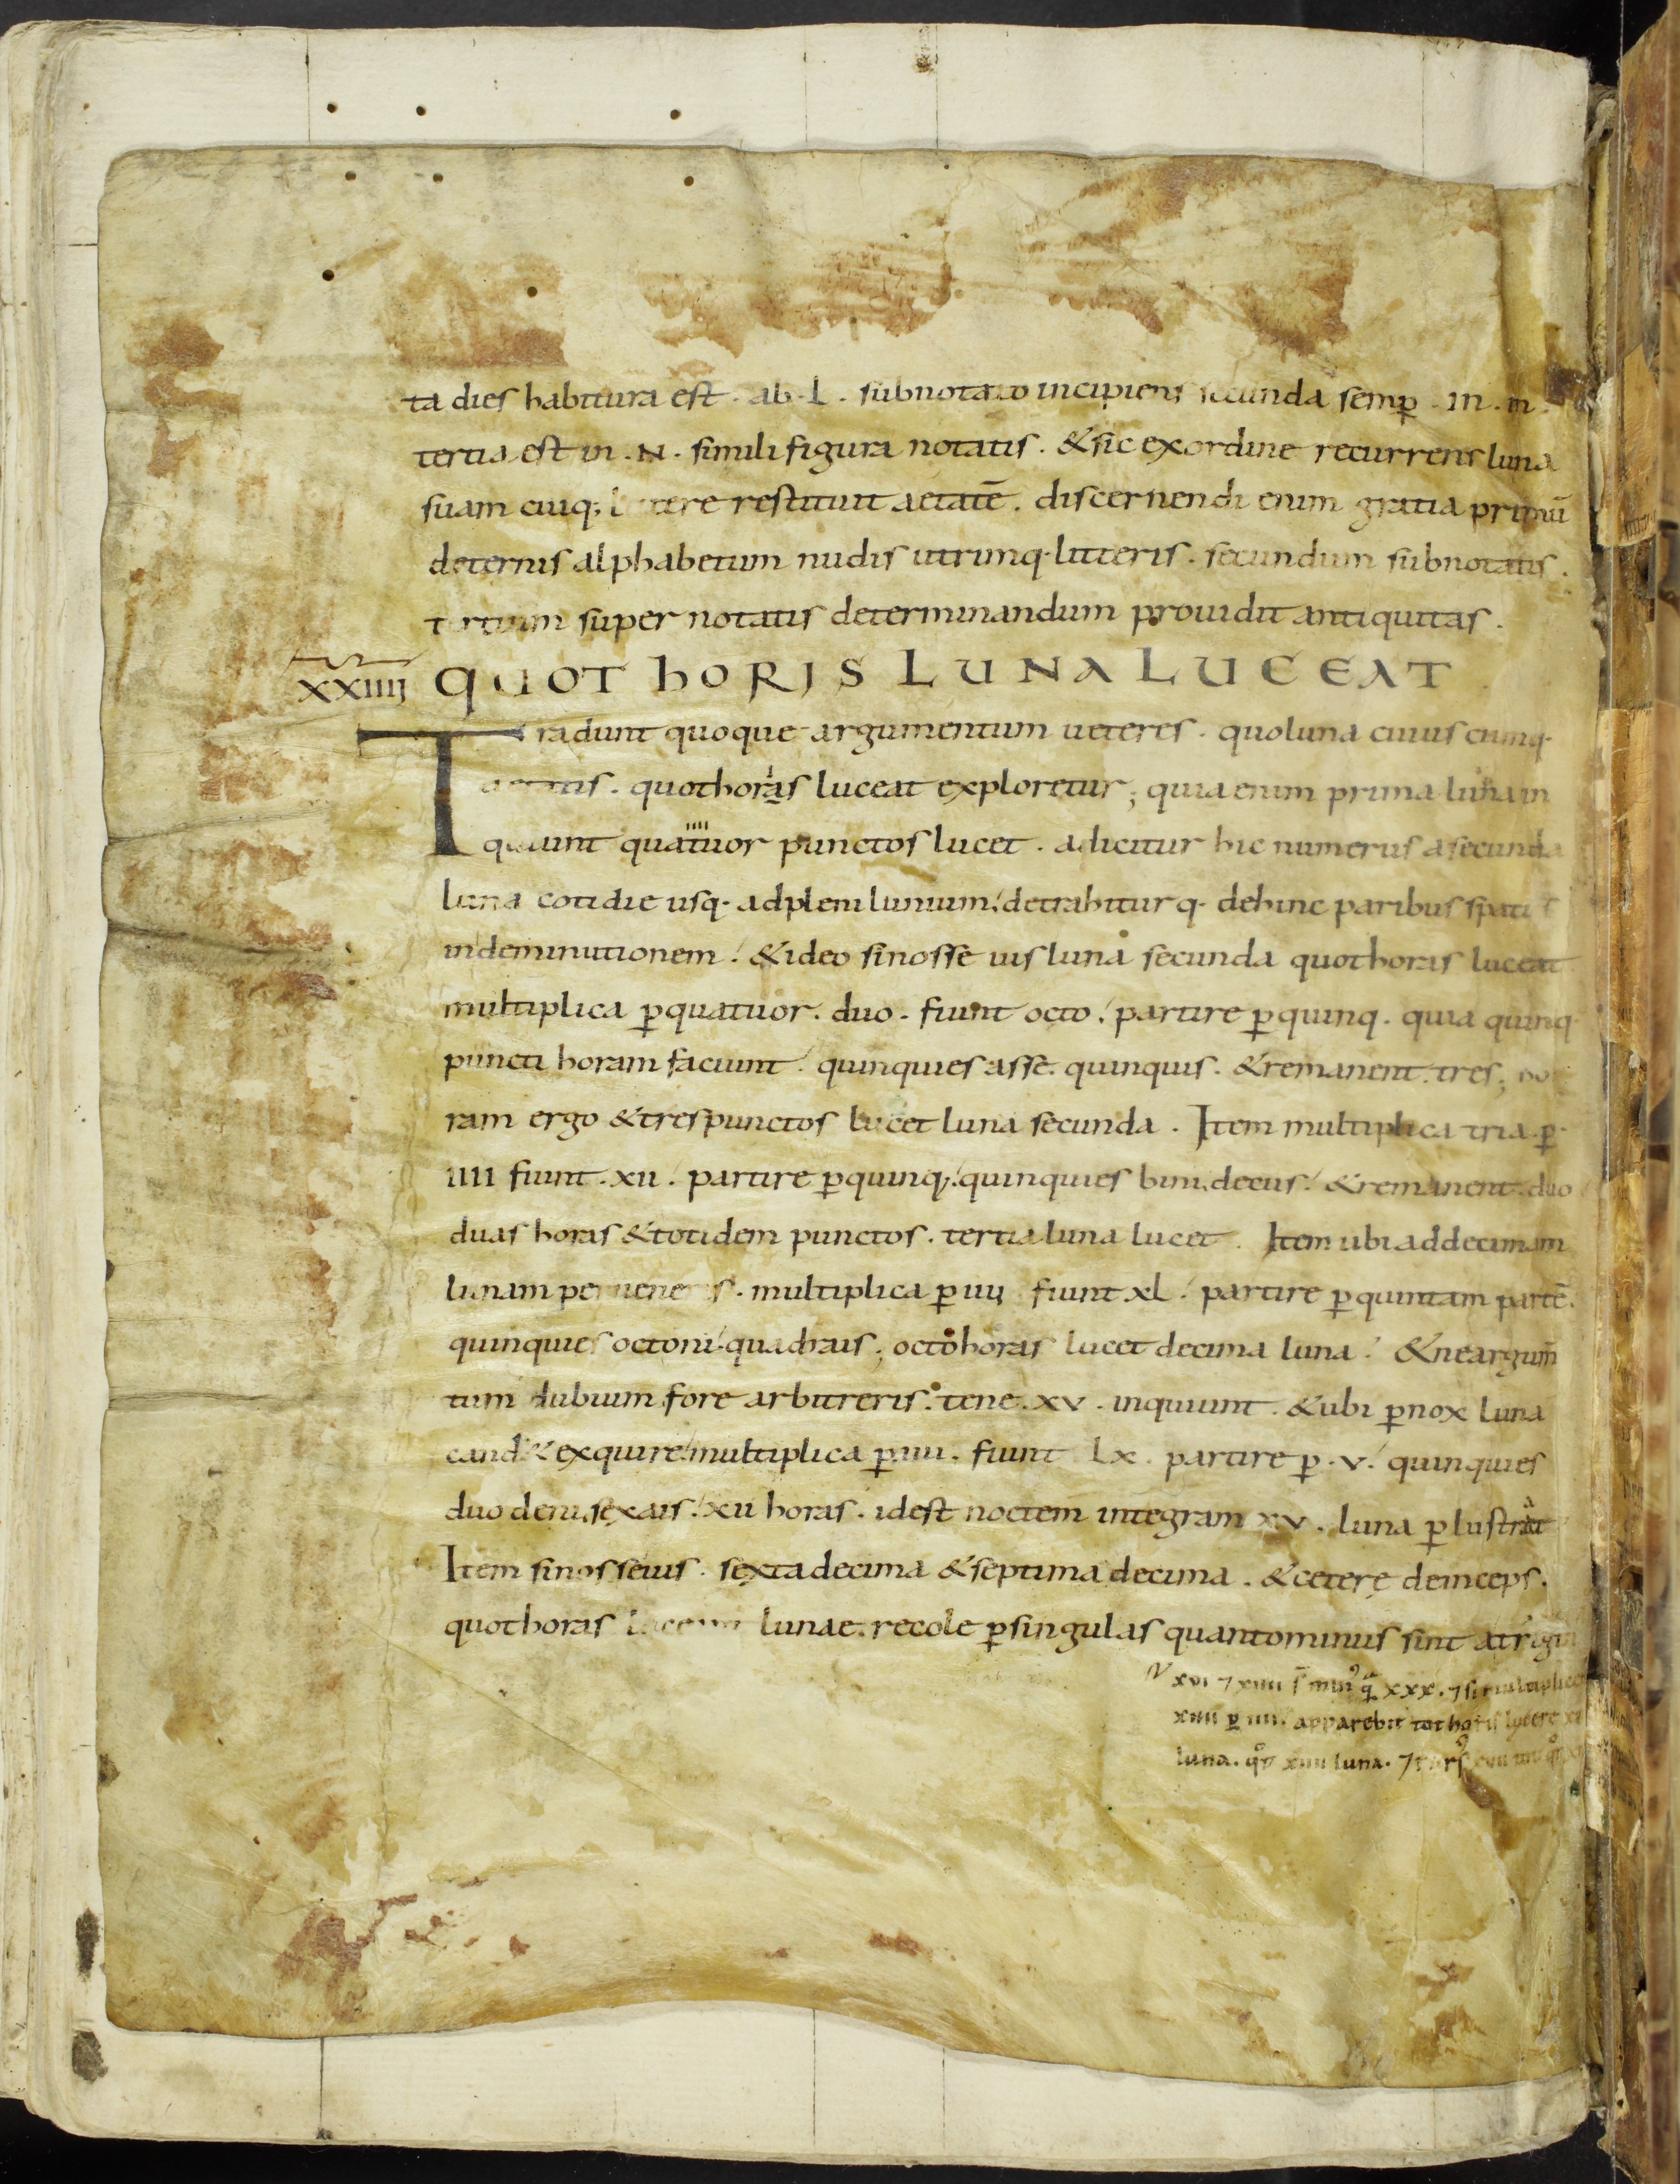 ta dies habitura est · ab · l · subnotato incipiens secunda semꝑ · in · m ·
tertia est in · N · simili figura notatis · & sic ex ordine recurrens luna
suam cuiq; littere restituit aetatē · discernendi enim gratia primū
deternis alphabetum nudis utrimq· litteris · secundum subnotatis ·
tertium super notatis determinandum prouidit antiquitas ·
XXIIII QUOT HORIS LUNA LUCEAT
Tradunt quoque argumentum ueteres · quo luna cuius cumq·
aetatis · quot horas luceat exploretur; quia enim prima luna in
quiunt quattuor punctos lucet · adicitur hic numerus a secunda
luna cotidie usq· ad plenilunium / detrahiturq· dehinc paribus spatiis
in deminutionem / & ideo si nosse uis luna secunda quot horas luceat
multiplica ꝑ quatuor · duo · fiunt octo / partire ꝑ quinq· quia quinq·
puncti horam faciunt / quinquies asse · quinquis · & remanent · tres; ho
ram ergo & tres punctos lucet luna secunda · Item multiplica tria ꝑ
IIII fiunt · xii / partire ꝑ quinq; / quinquies bini · decus / & remanent · duo
duas horas & totidem punctos · tertia luna lucet · Item ubi ad decimam
lunam perueneris · multiplica ꝑ iiij fiunt xl / partire ꝑ quintam partē ·
quinquies octoni · quadrais; octo horas lucet decima luna / & ne argum̄
tum dubium fore arbitreris · tene · xv · inquiunt · & ubi ꝑnox luna
cand& exquire / multiplica ꝑ iiii · fiunt Lx · partire ꝑ · v · / quinquies
duo deni, sexais / xii horas · idest noctem integram xv · luna ꝑlustrat
Item si nosse uis · sexta decima & septima decima · & ceterę deinceps ·
quot horas lucent lunae · recole ꝑ singulas quanto minus sint a trigin
xvi ⁊ xiiii s̄ min᾿ xxx · ⁊ si multiplice
xiiii ꝑ iiii · apparebit tot horis lucere
luna · xiiii luna ·